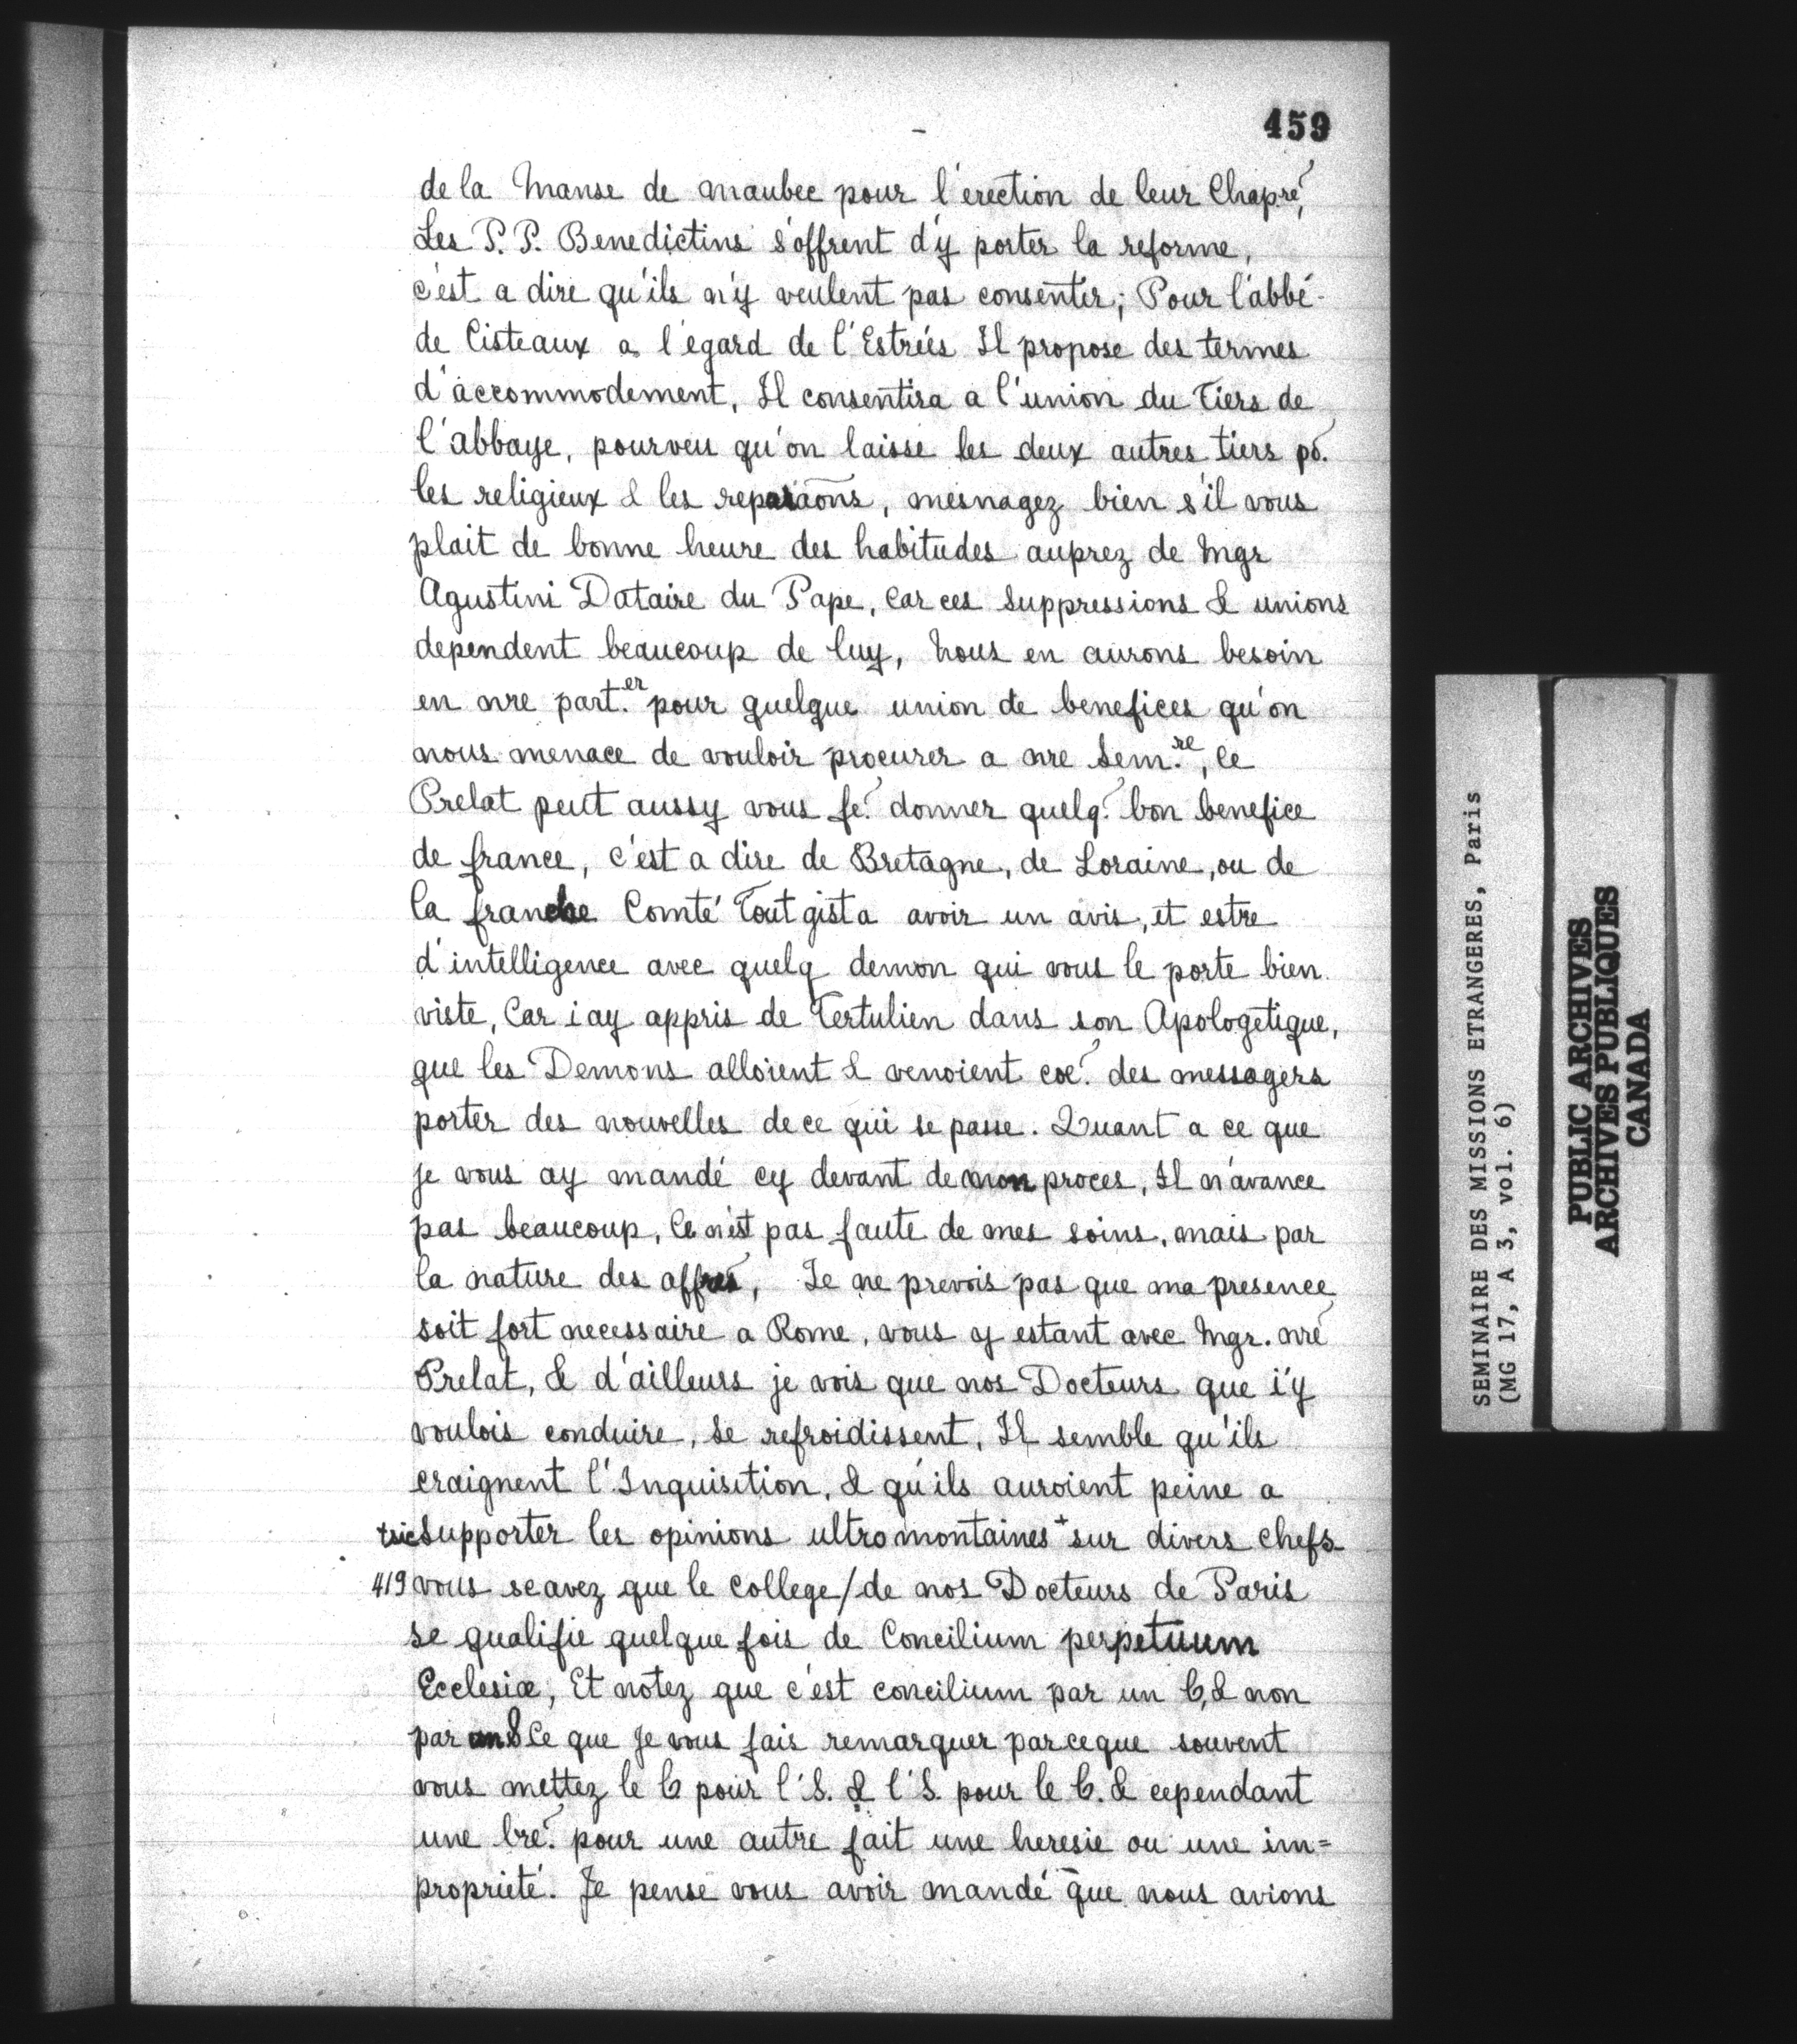 459
de la Manse de maubec pour l'erection de leur Chapre,
Les P. P. Benedictins s'offrent d'y porter la reforme,
c'est a dire qu'ils n'y veulent pas consentir; Pour l'abbé
de Cisteaux a l'egard de l'Estrées Il propose des termes
d'accommodement, Il consentira a l'union du Tiers de
l'abbaye, pourveu qu'on laisse les deux autres tiers pō.
les religieux & les reparaōns, mesnagez bien s'il vous
plait de bonne heure des habitudes auprez de Mgr
Agustini Dataire du Pape, Car ces suppressions & unions
dependent beaucoup de luy, Nous en aurons besoin
en nre part.er pour quelque union de benefices qu'on
nous menace de vouloir procurer a nre Sem.re, Ce
Prelat peut aussy vous fe. donner quelq. bon benefice
de france, c'est a dire de Bretagne, de Loraine, ou de
la franche Comté Tout gist a avoir un avis, et estre
d'intelligence avec quelq demon qui vous le porte bien
viste, Car i ay appris de Tertulien dans son Apologetique,
que les Demons alloient & venoient coe. des messagers
porter des nouvelles de ce qui se passe. Quant a ce que
je vous ay mandé cy devant de mon proces, Il n'avance
pas beaucoup, Ce n'est pas faute de mes soins, mais par
la nature des affres, Je ne prevois pas que ma presence
soit fort necessaire a Rome, vous y estant avec Mgr. nre
Prelat, & d'ailleurs je vois que nos Docteurs que i'y
voulois conduire, se refroidissent, Il semble qu'ils
craignent l'Inquisition, & qu'ils auroient peine a
+sic supporter les opinions ultromontaines + sur divers chefs
419 vous scavez que le college / de nos Docteurs de Paris
se qualifie quelque fois de Concilium perpetuum
Ecclesiæ, Et notez que c'est concilium par un C, & non
par un S Ce que Je vous fais remarquer parceque souvent
vous mettez le C pour l'S. & l'S. pour le C. & cependant
une lre. pour une autre fait une heresie ou une im=
propriété. Je pense vous avoir mandé que nous avions
SEMINAIRE DES MISSIONS ETRANGERES, Paris
(MG 17, A 3, vol. 6)
PUBLIC ARCHIVES
ARCHIVES PUBLIQUES
CANADA